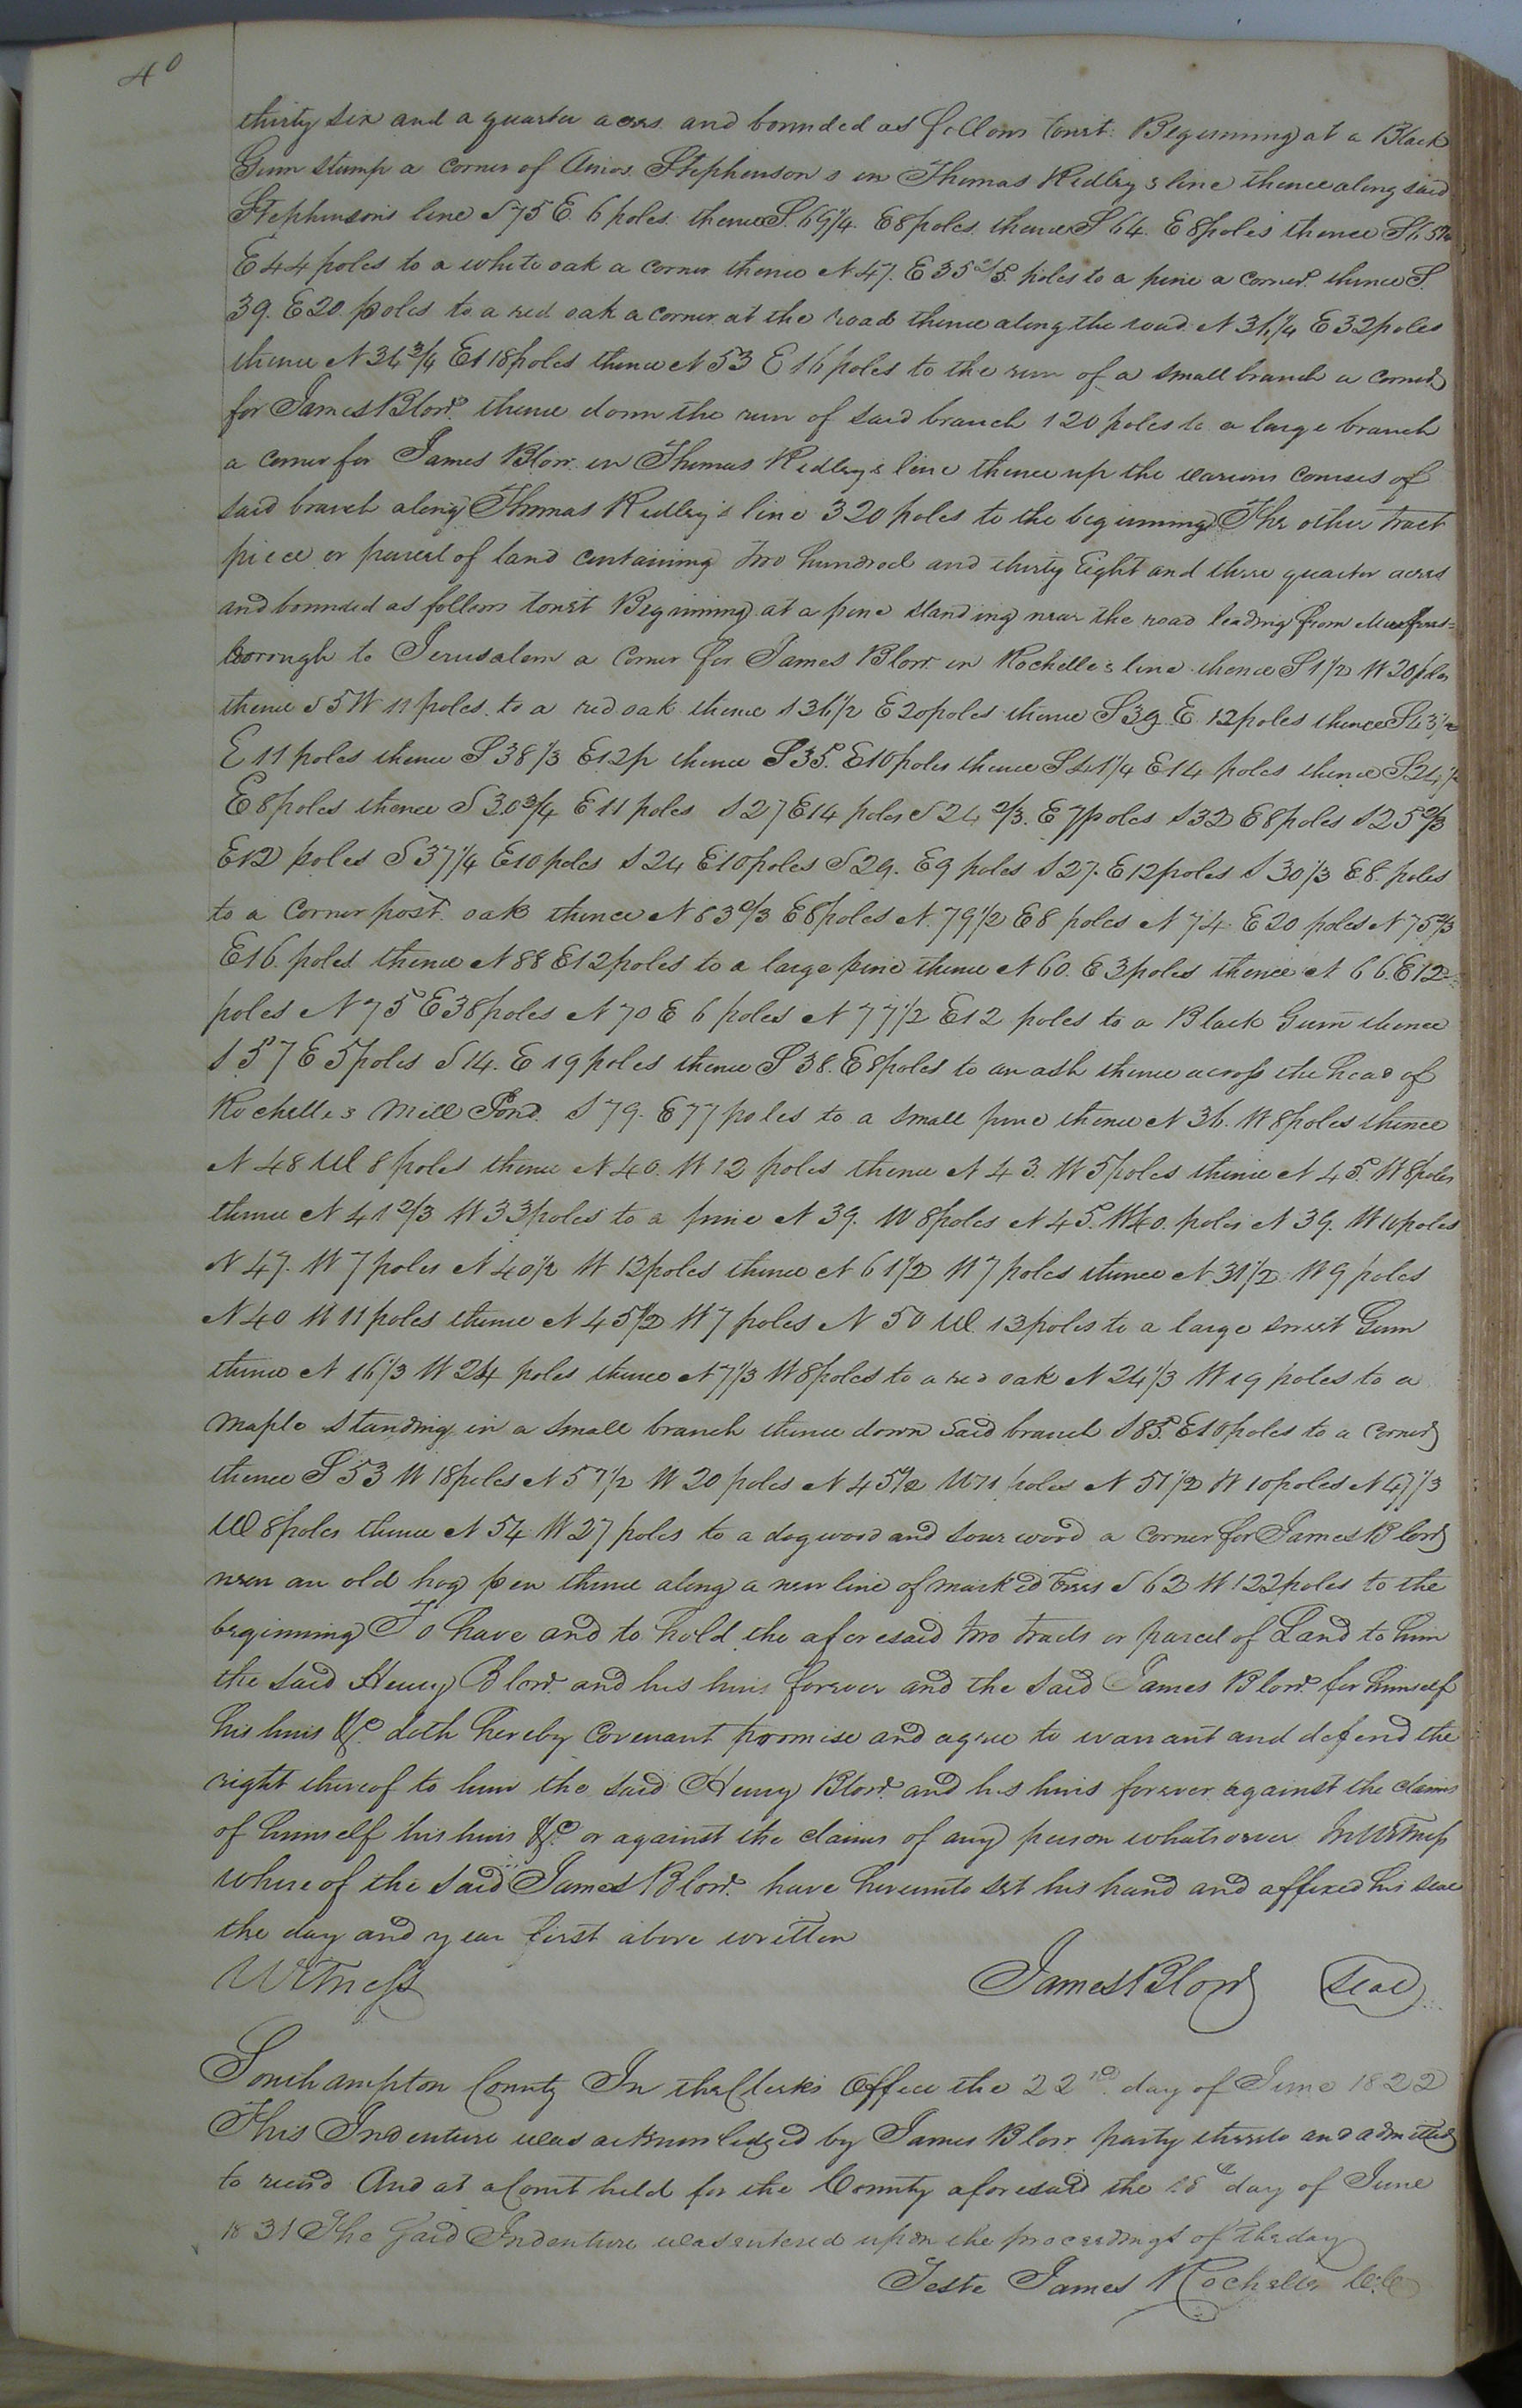 40
thirty six and a quarter acres and bounded as follows towit: Beginning at a Black
Gum stump a corner of Amos Stephenson's in Thomas Ridley's line thence along said
Stephenson's line S 75 E. 6 poles. thence S. 69 1/4. E 8 poles. thence S 64. E 8 poles thence S
E 44 poles to a white oak a corner thence N 47. E 35 2/5. poles to a pine a corner. thence S.
39. E 20. poles to a red oak a corner at the road thence along the road N 31 1/4 E 32 poles
thence N 34 3/4 E 118 poles thence N 53 E 16 poles to the run of a small branch a corner
for James Blow. thence down the run of said branch 120 poles to a large branch
a corner for James Blow in Thomas Ridley's line thence up the various courses of
said branch along Thomas Ridley's line 320 poles to the beginning The other tract
piece or parcel of land containing two hundred and thirty Eight and three quarter acres
and bounded as follows towit Beginning at a pine standing near the road leading from Murfrees=
borough to Jerusalem a corner for James Blow in Rochelle's line thence S 1 1/2 W 20 poles
thence S 5 W 11 poles. to a red oak thence S 36 1/2 E 20 poles thence S 39. E. 12 poles thence S 43 1/2
E 11 poles thence S 38 1/3 E 12 p thence S 35. E 10 poles thence S 41 1/4 E 14 poles thence S 24 1/2
E 8 poles thence S 30 3/4 E 11 poles S 27 E 14 poles S 24 2/3. E 7 poles S 32 E 8 poles S 25 2/3
E 12 poles S 37 1/4 E 10 poles S 24 E 10 poles S 29. E 9 poles S 27. E 12 poles S 30 1/3 E 8. poles
to a corner post oak thence N 63 2/3 E 8 poles N. 79 1/2 E 8 poles N 74 E 20 poles N 75 2/3
E 16. poles thence N 88 E 12 poles to a large pine thence N 60. E 3 poles thence N 66. E 12
poles N 75 E 38 poles N 70 E 6 poles N 77 1/2 E 12 poles to a Black Gum thence
S 57 E 5 poles S 14. E 19 poles thence S 38. E 8 poles to an ash thence across the head of
Rochelle's Mill Pond. S 79. E 77 poles to a small pine thence N 36. W 8 poles thence
N 48 W 8 poles thence N 40. W 12 poles thence N 43. W 5 poles thence N 45. W 8 poles
thence N 41 2/3 W 33 poles to a pine N 39. W 8 poles N 45. W 40. poles N 39. W 10 poles
N 47. W 7 poles N 40 1/2 W 12 poles thence N 61 1/2 W 7 poles thence N 31 1/2 W 9 poles
N 40 W 11 poles thence N 45 1/2 W 7 poles N 50 W. 13 poles to a large sweet Gum
thence N 16 1/3 W 24 poles thence N 7 1/3 W 8 poles to a red oak N 24 1/3 W 19 poles to a
maple standing in a small branch thence down said branch S 85. E 10 poles to a corner
thence S 53 W 18 poles N 57 1/2 W 20 poles N 45 1/2 W 11 poles N 51 1/2 W 10 poles N 47 1/3
W 8 poles thence N 54 W 27 poles to a dogwood and sour wood a corner for James Blow
near an old hog pen thence along a new line of marked trees S 62 W 122 poles to the
beginning To have and to hold the aforesaid two tracts or parcel of Land to him
the said Henry Blow. and his heirs forever and the said James Blow. for himself
his heirs &c. doth hereby covenant promise and agree to warrant and defend the
right thereof to him the said Henry Blow. and his heirs forever against the claims
of himself his heirs &c. or against the claims of any person whatsoever In Witness
whereof the said James Blow. have hereunto set his hand and affixed his seal
the day and year first above written
Witness James Blow Seal
Southampton County In the Clerks Office the 22nd. day of June 1822
This Indenture was acknowledged by James Blow party thereto and admitted
to record And at a Court held for the County aforesaid the day of June
1831 The said Indenture was entered upon the proceedings of the day
Teste James Rochelle C.C